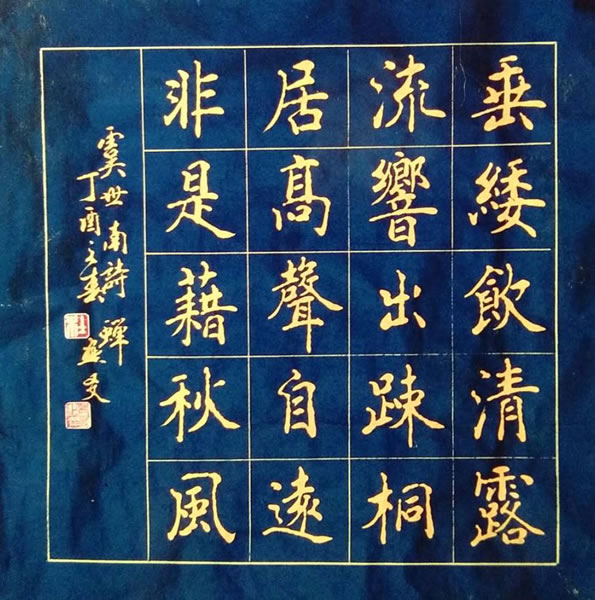 垂緌飲清露
流響出疎桐
居髙聲自遠
非是藉秋風
虞世南詩 蝉
丁酉之春